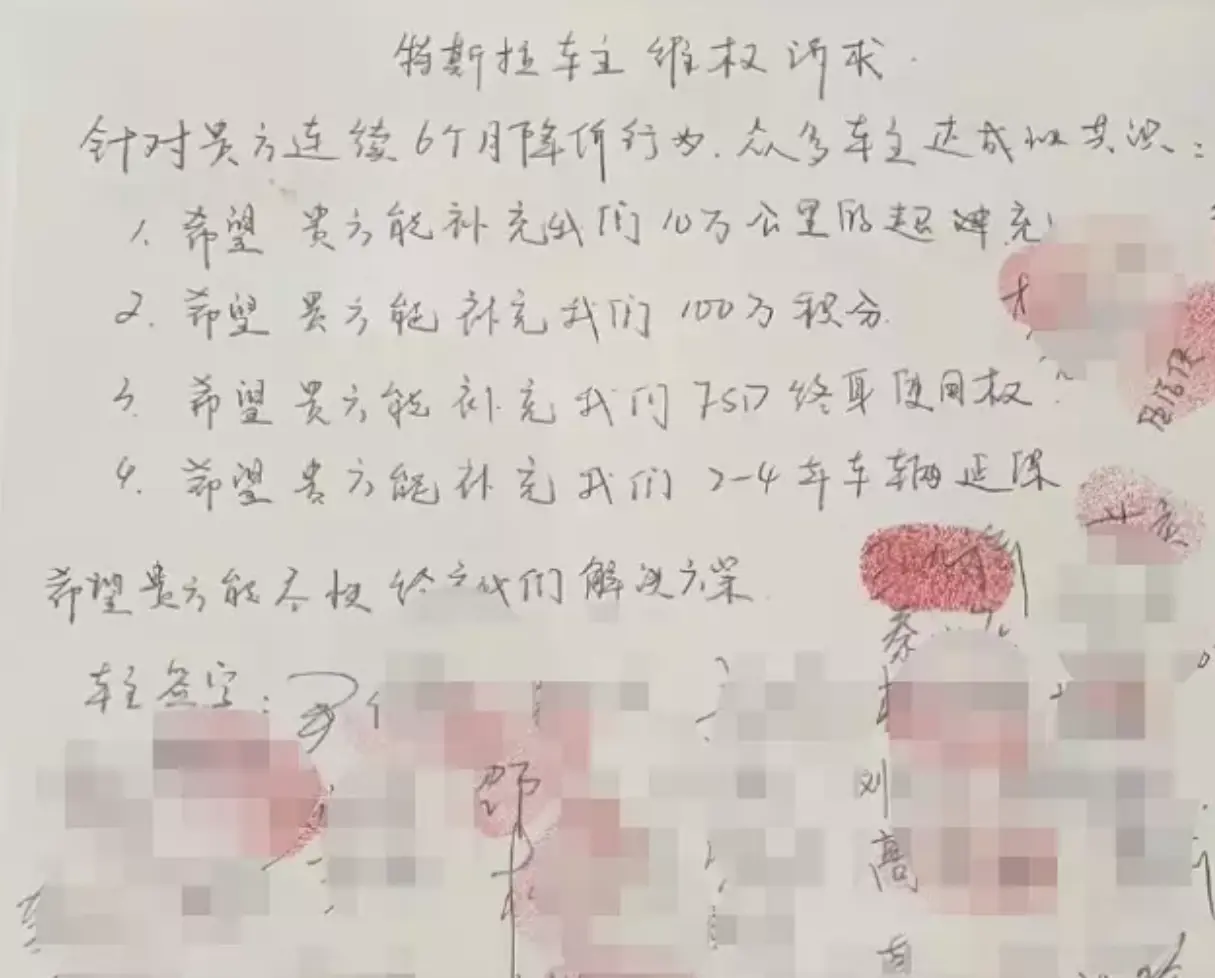 特斯拉车主维权诉求.
针对贵方连续6个月降价行为.众多车主达成以共识:
1. 希望贵方能补充我们10万公里的超速充
2. 希望贵方能补充我们100万积分.
3. 希望贵方能补充我们FSD终身使用权
4. 希望贵方能补充我们2-4年车辆延保
希望贵方能尽快给予我们解决方案.
车主签字:
邵
秦
刘
高